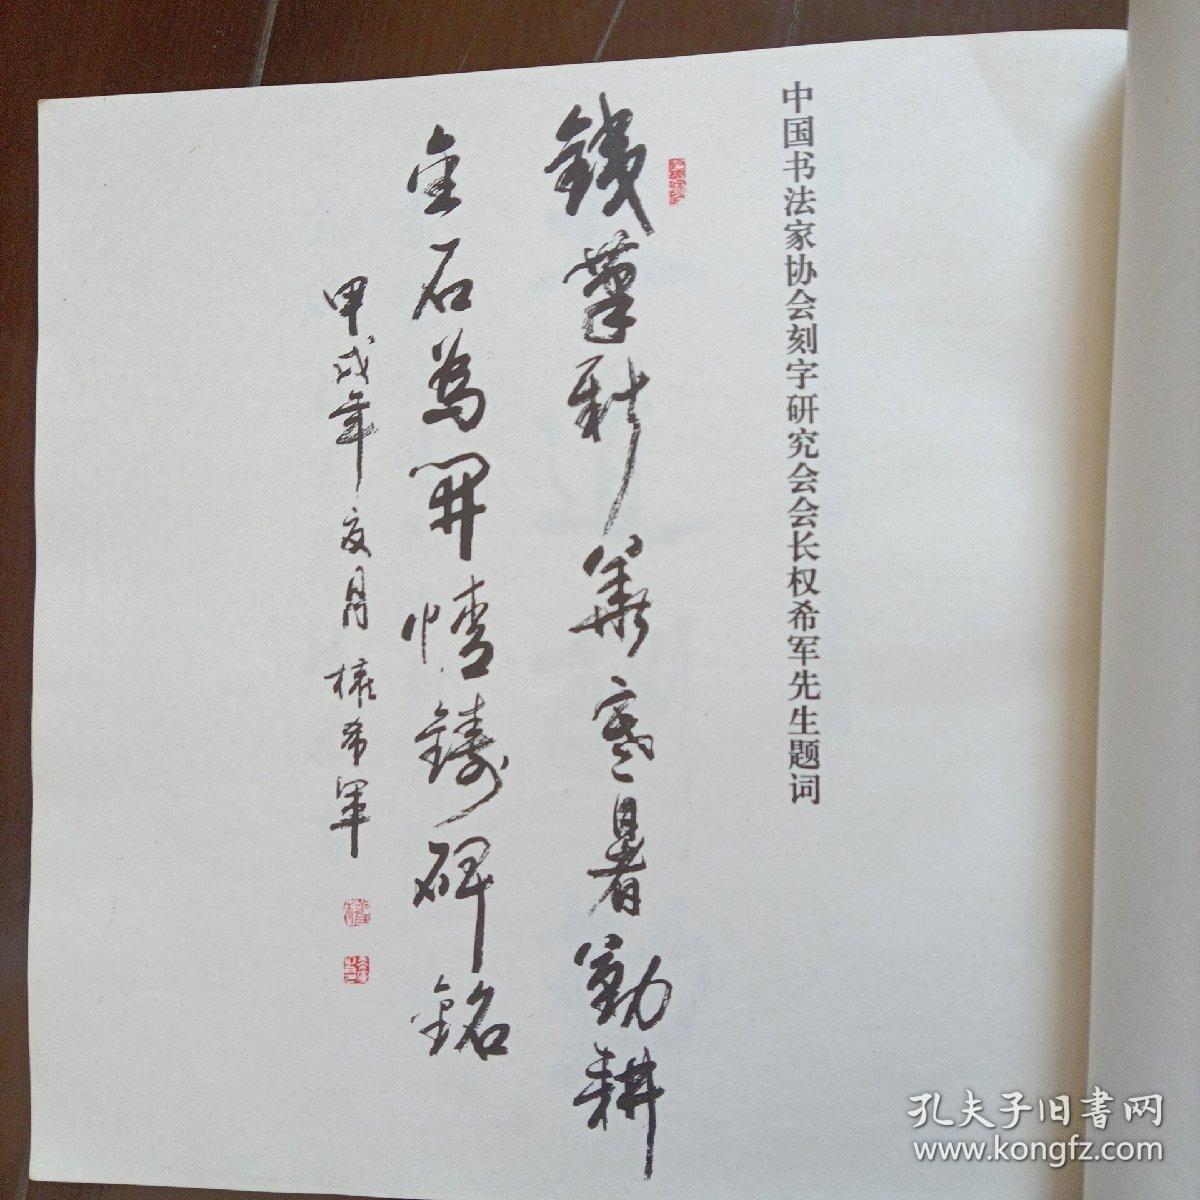 中国书法家协会刻字研究会会长权希军先生题词
鐵筆寒暑勤耕
金石為開情鑄碑銘
甲戌年夏月 權希軍
孔夫子旧書网
www.kongfz.com